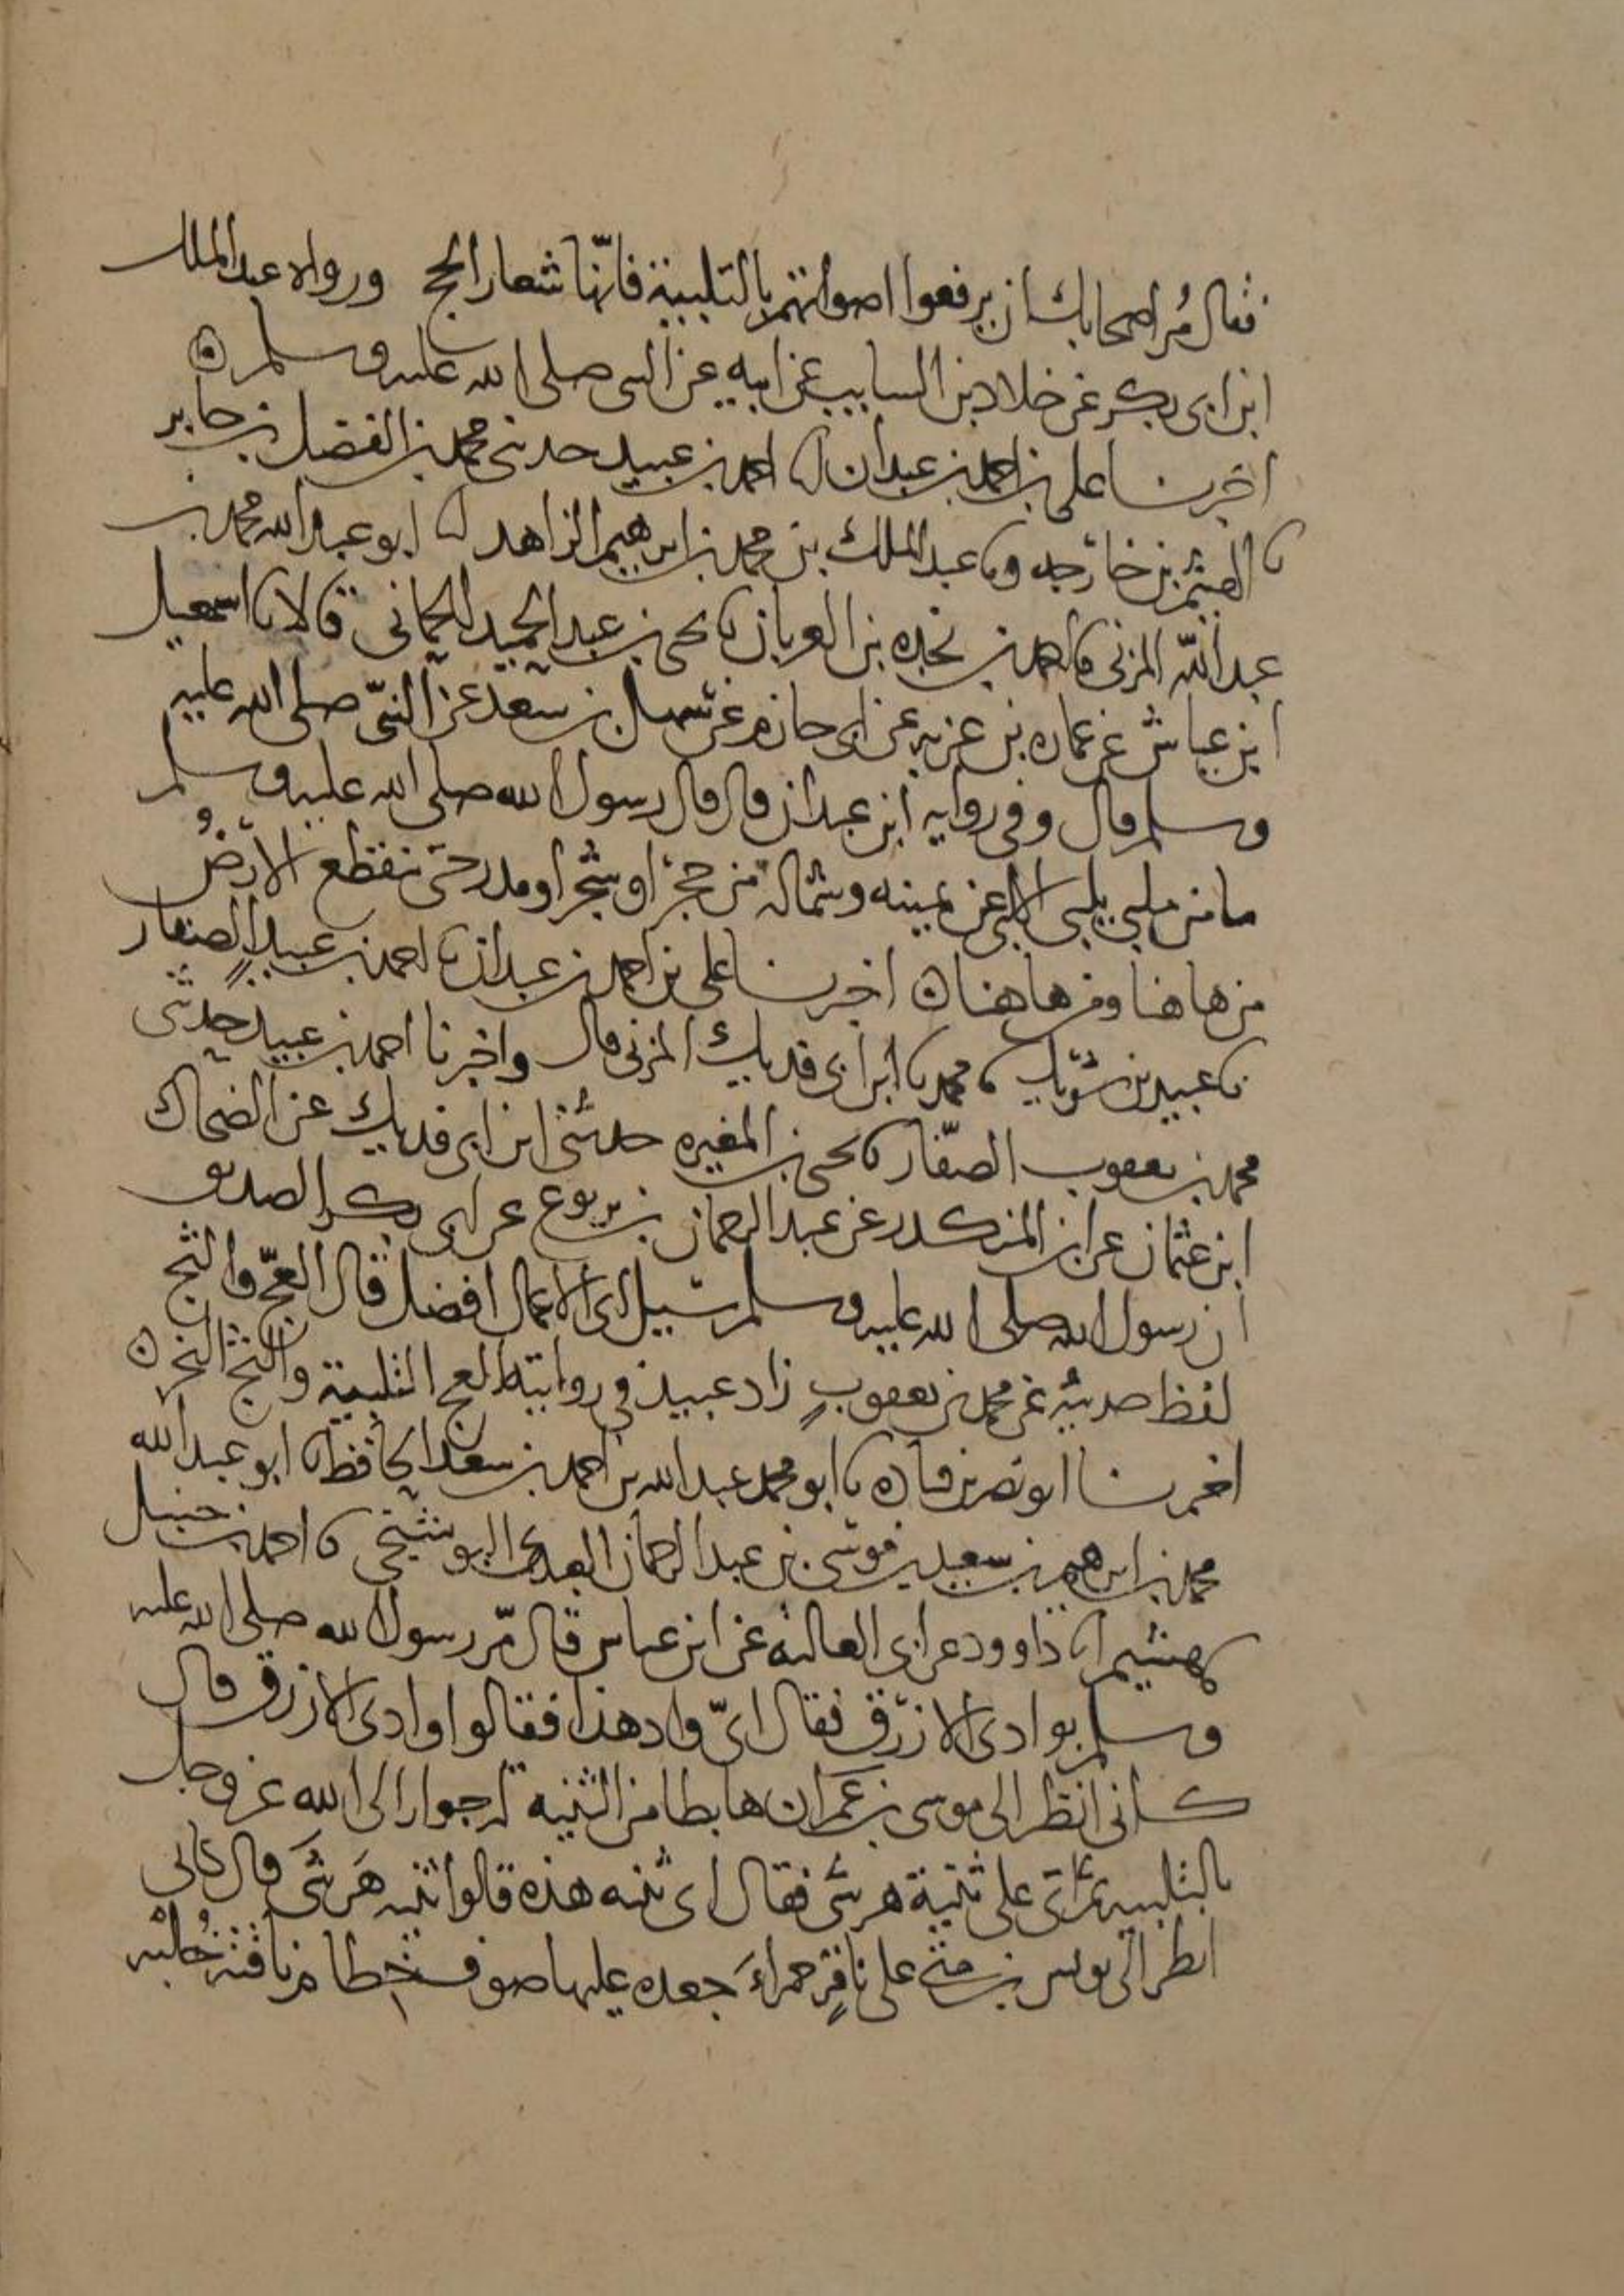 فقال مُر اصحابك ان يرفعوا اصواتهم بالتلبية فانّها شعار الحج ورواه عبد الملك
ابن ابى بكر عن خلاد بن السايب عن ابيه عن النبى صلى الله عليه وسلم ه
اخبرنا على بن احمد بن عبدان انا احمد بن عبيد حدثنى محمد بن الفضل بن جابر
نا الهيثم بن خارجه ونا عبد الملك بن محمد بن ابرهيم الزاهد انا ابو عبد الله محمد بن
عبد الله المزنى نا احمد بن نجده بن العريان نا يحيى بن عبد الحميد الحمانى قالا نا اسمعيل
ابن عياش عن عماره بن غزيه عن ابى حازم عن سهل بن سعد عن النبىّ صلى الله عليه
وسلم قال وفى روايه ابن عبدان قال قال رسول الله صلى الله عليه وسلم
ما من ملبى يلبى الا لبى عن يمينه وشماله من حجر او شجر او مدر حتى تنقطع الارضُ
من هاهنا ومن هاهنا ه اخبرنا على بن احمد بن عبدان نا احمد بن عبيد الصفار
نا عبيد بن شريك نا محمد نا ابن ابى فديك المزنى قال واخبرنا احمد بن عبيد حدثنى
محمد بن يعقوب الصفّار نا يحيى بن المغيره حدثنى ابن ابى فديك عن الضحاك
ابن عثمان عن ابن المنكدر عن عبد الرحمان بن يربوع عن ابى بكر الصديق
ان رسول الله صلى الله عليه وسلم سئيل اى الاعمال افضل قال العجّ والثج
لفظ حديثه عن محمد بن يعقوب زاد عبيد فى روايته العج التلبية والثج النحر ه
اخبرنا ابو نصر بن قتاده نا ابو محمد عبد الله بن احمد بن سعد الحافظ نا ابو عبد الله
محمد بن ابرهيم بن سعيد بن موسى بن عبد الرحمان العبدى البوشنجى نا احمد بن حنبل
نا هشيم انا داوود عن ابى العاليه عن ابن عباس قال مّر رسول الله صلى الله عليه
وسلم بوادى الازرق فقال اىّ واد هذا فقالوا وادى الازرق قال
كانى انظر الى موسى بن عمران هابطا من الثنيه له جوار الى الله عز وجل
بالتلبيه ثم اتى على ثنية هرشى فقال اى ثنيه هذه قالوا ثنيه هَرشَى قال كانى
انظر الى يونس بن متى على ناقةٍ حمراءَ جعده عليها صوف خطام ناقته خُلبه